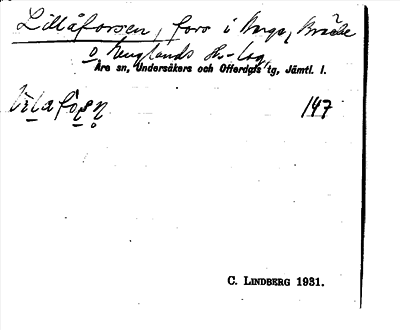 Lillåforsen, fors i Berge, Bräcke
o. Englands Hs-lag,
Åre sn, Undersåkers och Offerdals tg, Jämtl. l.
147
C. LINDBERG 1931.